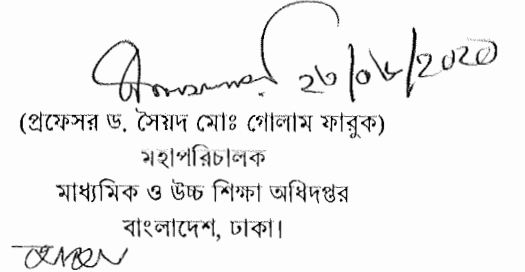 ২৩/০৮/2020
(প্রফেসর ড. সৈয়দ মোঃ গোলাম ফারুক)
মহাপরিচালক
মাধ্যমিক ও উচ্চ শিক্ষা অধিদপ্তর
বাংলাদেশ, ঢাকা।